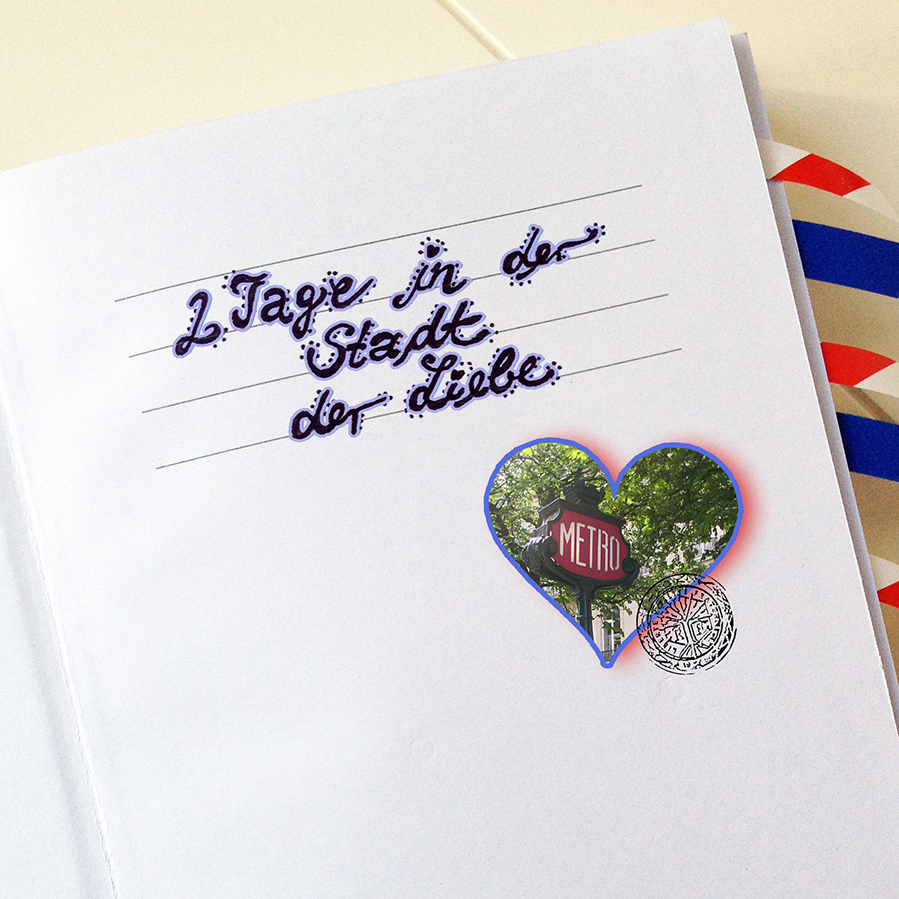 2 Tage in der
Stadt
der Liebe
METRO